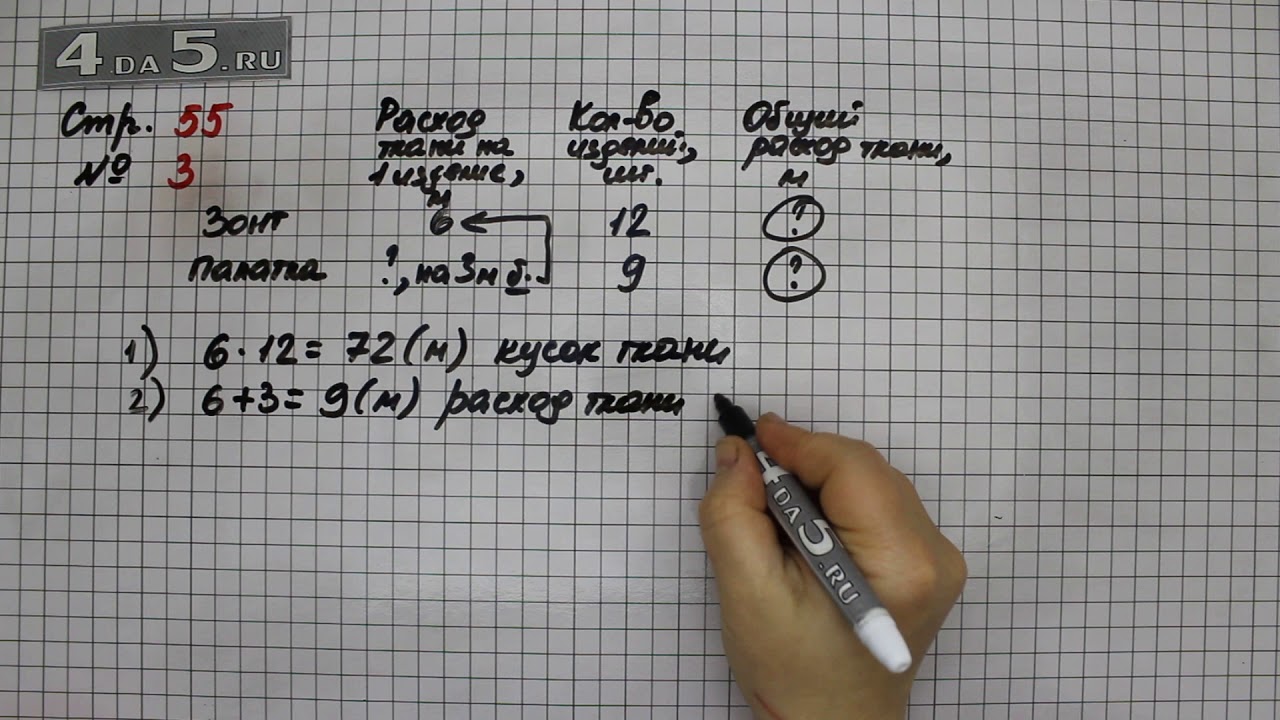 4DA5.RU
Стр. 55
№ 3
Расход ткани на 1 изделие, м
Кол-во изделий, шт.
Общий расход ткани, м
Зонт 6 12 ?
Палатка ?, на 3м б. 9 ?
1) 6 · 12 = 72 (м) кусок ткани
2) 6 + 3 = 9 (м) расход ткани
4DA5.RU